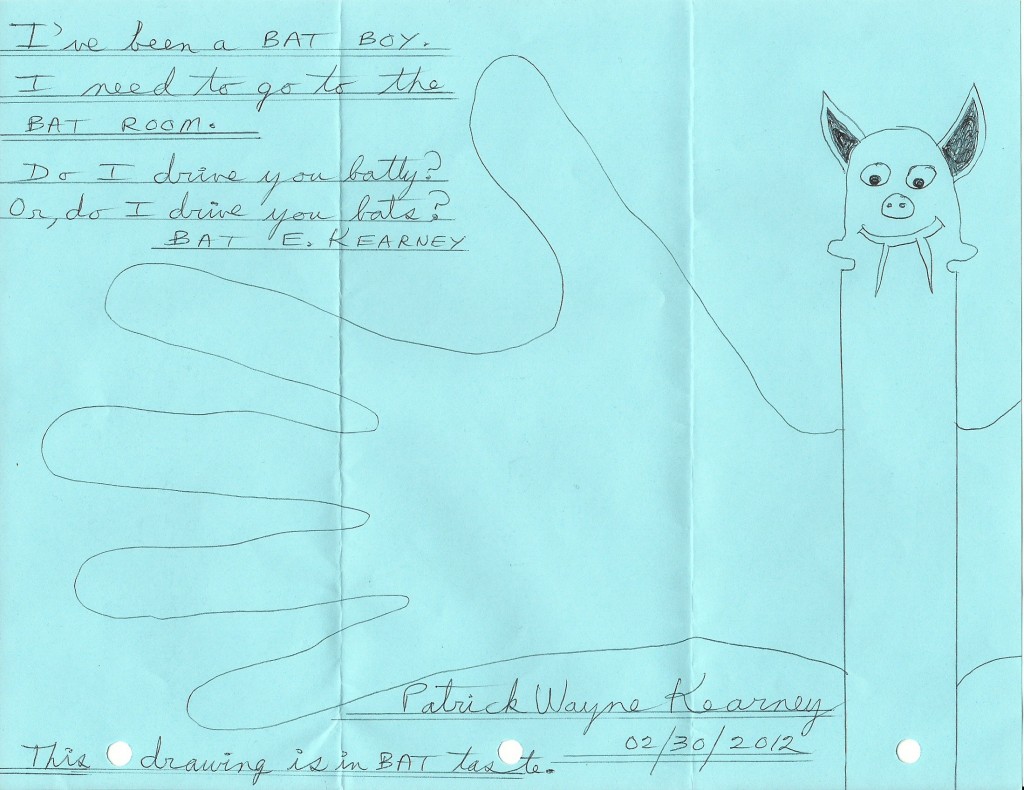 I've been a BAT BOY.
I need to go to the
BAT ROOM.
Do I drive you batty?
Or, do I drive you bats?
BAT E. KEARNEY
Patrick Wayne Kearney
02/30/2012
This drawing is in BAT taste.